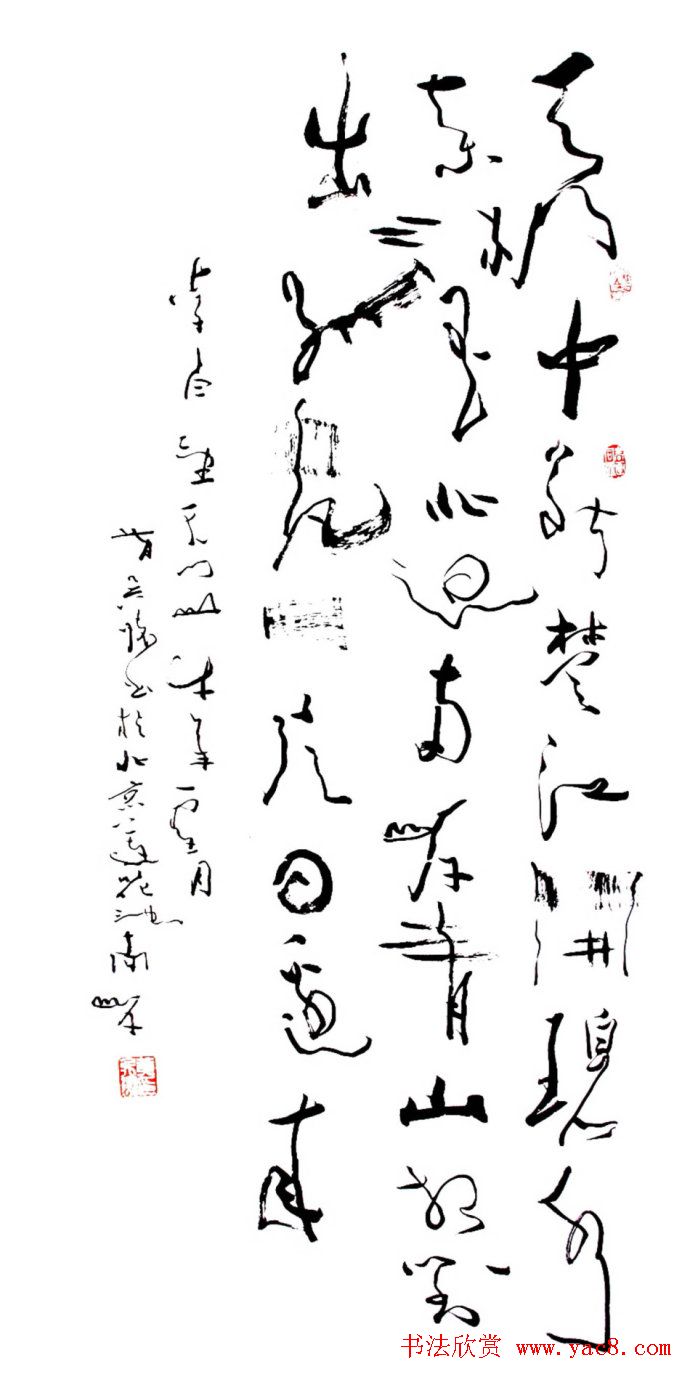 天門中斷楚江開碧水
東流至此回兩岸青山相對
出孤帆一片日邊來
李白望天門山 年夏月
書於北京蓮花池南岸
书法欣赏 www.yac8.com